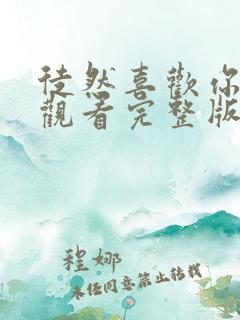 徒然喜歡你
觀看完整版
程娜
未经同意禁止转载